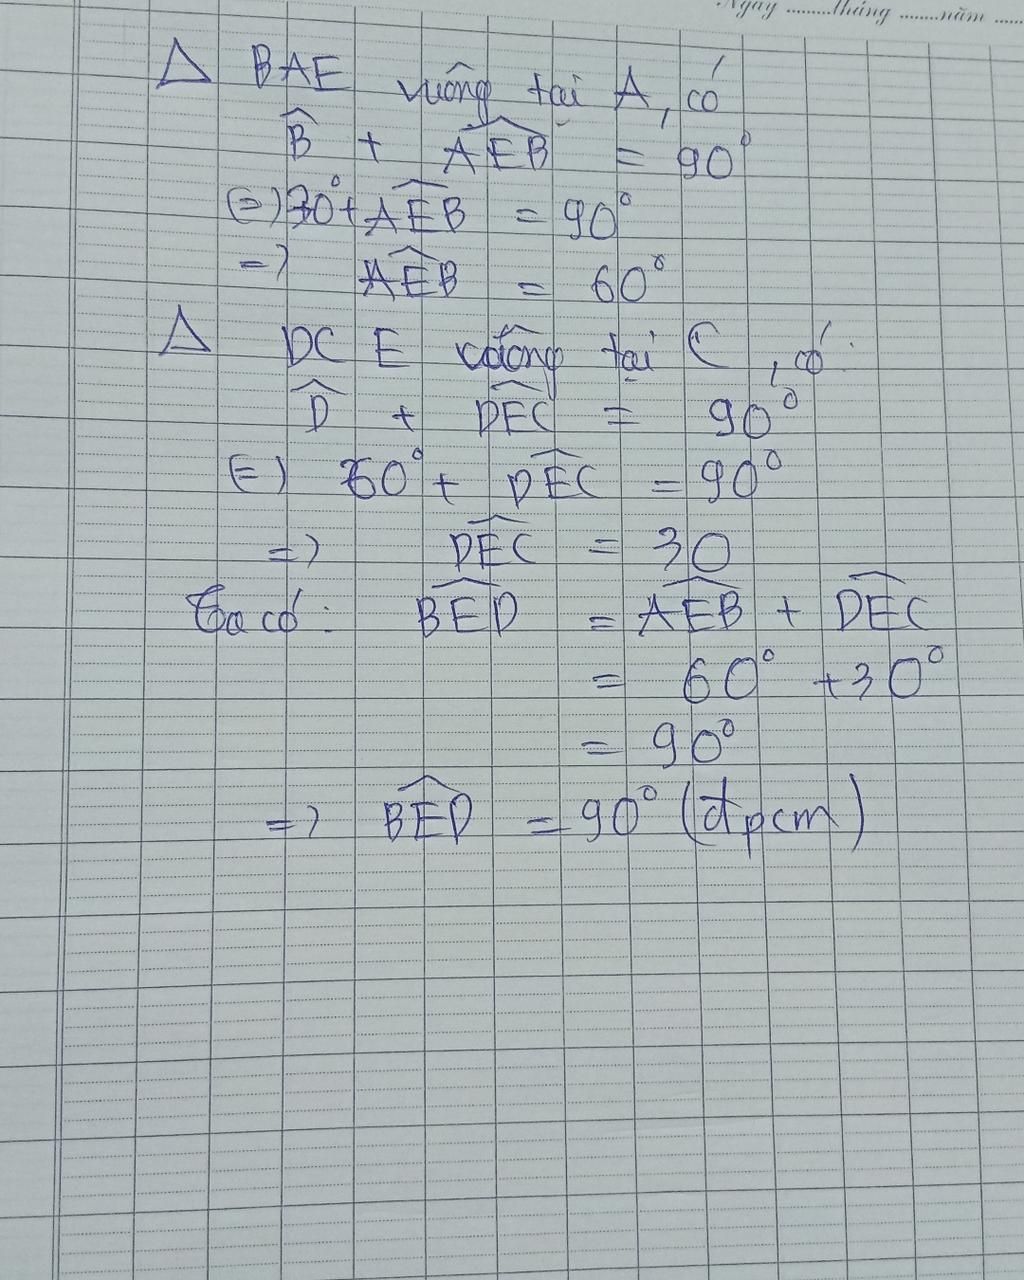 Ngày ......... tháng ......... năm ......
Δ BAE vuông tại A, có
B̂ + AÊB = 90°
(=) 30° + AÊB = 90°
=) AÊB = 60°
Δ DCE vuông tại C, có:
D̂ + DÊC = 90°
(=) 60° + DÊC = 90°
=) DÊC = 30
Ta có: BÊD = AÊB + DÊC
= 60° + 30°
= 90°
=) BÊD = 90° (đpcm)